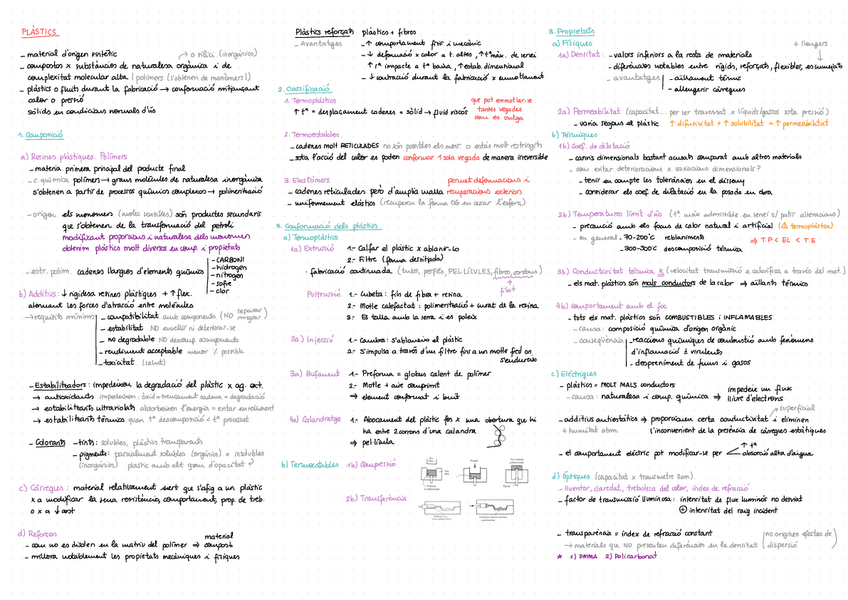 PLÀSTICS
- material d'origen sintètic
→ o silici (inorgànics)
- compostos x substàncies de naturalesa orgànica i de
complexitat molecular alta (polímers (s'obtenen de monòmers))
- plàstics o fluids durant la fabricació → conformació mitjançant
calor o pressió
sòlids en condicions normals d'ús
1. Composició
a) Resines plàstiques. Polímers
- matèria primera principal del producte final
- c. química polímers → grans molècules de naturalesa inorgànica
s'obtenen a partir de processos químics complexos → polimerització
- origen: els monòmers (molec. senzilles) són productes secundaris
que s'obtenen de la transformació del petroli
modificant proporcions i naturalesa dels monòmers
obtenim plàstics molt diversos en comp. i propietats
- estr. polím. cadenes llargues d'elements químics
- CARBONI
- hidrogen
- nitrogen
- sofre
- clor
b) Additius: ↓ rigidesa resines plàstiques + ↑ flux.
atenuent les forces d'atracció entre molècules
→ requisits mínims
- compatibilitat amb components (NO separar migrar)
- estabilitat NO envellir ni deteriorar-se
- no degradable NO descomp components
- rendiment acceptable menor % possible
- toxicitat (salut)
- Estabilitzadors: impedeixen la degradació del plàstic x ag. ext.
→ antioxidants impedeixen: oxid = trencament cadena = degradació
→ estabilitzants ultraviolats absorbeixen l'energia = evitar envelliment
→ estabilitzants tèrmics quan tª descomposició < tª processat
- Colorants - tints: solubles, plàstics transparents
- pigments: parcialment solubles (orgànics) = insolubles
(inorgànics) plàstic amb alt grau d'opacitat
c) Càrregues: material relativament inert que s'afig a un plàstic
x a modificar la seua resistència, comportament, prop. de treb.
o x a ↓ cost
d) Reforços
material
- com no es dissolen en la matriu del polímer ⇒ compost
- millora notablement les propietats mecàniques i físiques
Plàstics reforçats plàstics + fibres
- Avantatges
- ↑ comportament físic i mecànic
- ↓ deformació x calor a t. altes, ↑ tª màx. de servei
↑ rª impacte a tª baixa, ↑ estab. dimensional
- ↓ contracció durant la fabricació x emmotllament
2. Classificació
1. Termoplàstics
↑ tª = desplaçament cadenes = sòlid → fluid viscós
que pot emmotlar-se
tantes vegades
com es vulga
2. Termoestables
- cadenes molt RETICULADES no són possibles els movs. o estàs molt restringits
- sota l'acció del calor es poden conformar 1 sola vegada de manera irreversible
3. Elastòmers
permet deformacions i
recuperacions exteriors
- cadenes reticulades però d'àmplia malla
- uniformement elàstics (recuperen la forma OG en cesar l'esforç)
3. Conformació dels plàstics
a) Termoplàstics
1a) Extrusió
1- Calfar el plàstic x ablanir-lo
2- Filtre (forma desitjada)
· fabricació continuada (tubs, perfils, PEL·LÍCULES, fibres, cordons)
Pultrusió
1- Cubeta: fils de fibra + resina
2- Motle calefactat: polimerització + curat de la resina
3- Es talla amb la serra i es poleix
2a) Injecció
1- Cambra: s'ablaneix el plàstic
2- S'impulsa a través d'un filtre fins a un motle fred on
s'endureix
3a) Bufament
1- Preforma = globus calent de polímer
2- Motle + aire comprimit
⇒ element conformat i buit
4a) Calandratge
1- Abocament del plàstic fos x una obertura que hi
ha entre 2 corrons d'una calandra
⇒ pel·lícula
b) Termoestables
1b) Compressió
2b) Transferència
3. Propietats
a) Físiques
+ lleugers
1a) Densitat: - valors inferiors a la resta de materials
- diferències notables entre rígids, reforçats, flexibles, escumejats
- avantatges
- aïllament tèrmic
- alleugerir càrregues
2a) Permeabilitat (capacitat... per ser travessat x líquids/gasos sota pressió)
- varia segons el plàstic ↑ difusivitat + ↑ solubilitat = ↑ permeabilitat
b) Tèrmiques
1b) Coef. de dilatació
- canvis dimensionals bastant acusats comparat amb altres materials
- com evitar deterioracions x variacions dimensionals?
- tenir en compte les toleràncies en el disseny
- considerar els coef. de dilatació en la posada en obra
2b) Temperatures límit d'ús (tª màx admissible en servei s/ patir alteracions)
- precaució amb els focus de calor natural i artificial (⚠ termoplàstics)
- en general - 70-200°C reblaniments
- 300-500°C descomposició tèrmica
⇒ T.P < EL < T.E
3b) Conductivitat tèrmica λ (velocitat transmissió e calorífica a través del mat.)
- els mat. plàstics són mals conductors de la calor → aïllants tèrmics
4b) Comportament amb el foc
- tots els mat. plàstics són COMBUSTIBLES I INFLAMABLES
- causa: composició química d'origen orgànic
- conseqüència
- reaccions químiques de combustió amb fenòmens
d'inflamació i virulents
- despreniment de fums i gasos
c) Elèctriques
- plàstics = MOLT MALS conductors
- causa: naturalesa i comp. química ⇒ impedeix un flux
lliure d'electrons
superficial
- additius antiestàtics ⇒ proporcionen certa conductivitat i eliminen
+ humitat atm. l'inconvenient de la presència de càrregues estàtiques
- el comportament elèctric pot modificar-se per
↑ tª
absorció alta d'aigua
d) Òptiques (capacitat x transmetre llum)
- lluentor, claredat, terbolesa del calor, índex de refracció
- factor de transmissió lluminosa: intensitat de flux lluminós no desviat
intensitat del raig incident
- transparència = índex de refracció constant
(no originen efectes de
dispersió)
→ materials que NO presenten diferències en la densitat
* 1) PMMA 2) Policarbonat